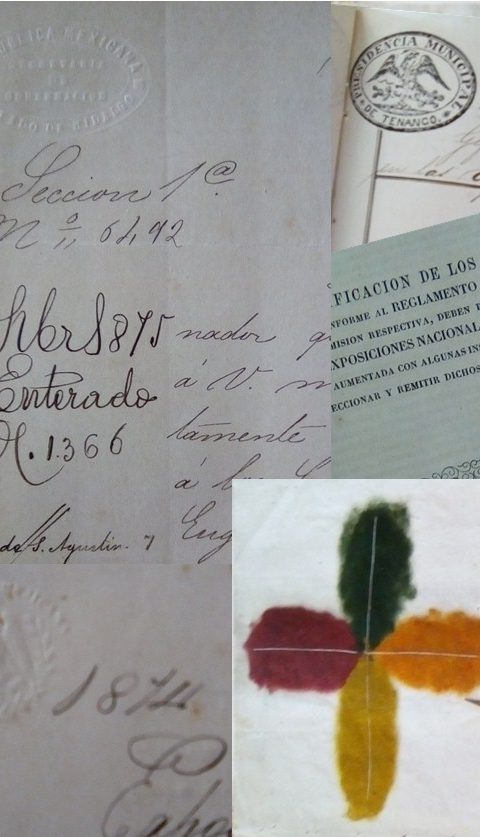 PUBLICA MEXICANA
SECRETARIA
DE
GOBERNACION
DE HIDALGO
Seccion 1ª
Nº 6492
1875
Enterado
1.366
nador
á V.
tamente
á
de S. Agustin.
1874
PRESIDENCIA MUNICIPAL
DE TENANCO.
FICACION DE LOS
NFORME AL REGLAMENTO
MISION RESPECTIVA, DEBEN
XPOSICIONES NACIONAL
AUMENTADA CON ALGUNAS
ECCIONAR Y REMITIR DICHOS